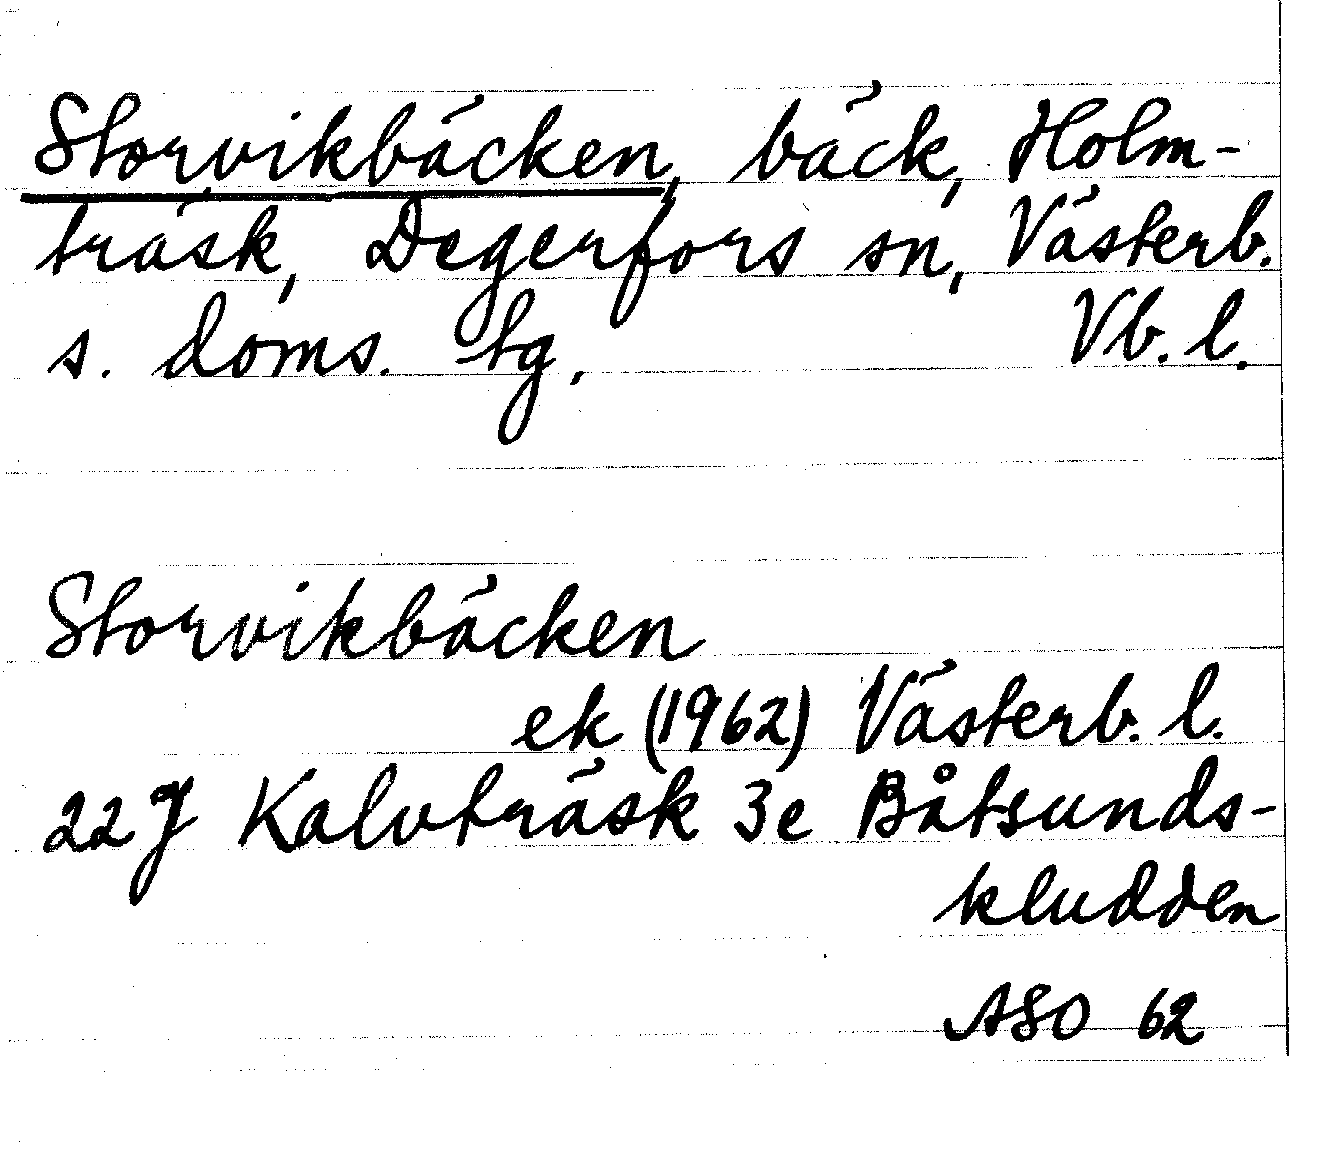 Storvikbäcken, bäck, Holm-
träsk, Degerfors sn, Västerb.
s. doms. tg, Vb. l.
Storvikbäcken
ek (1962) Västerb. l.
22J Kalvträsk 3e Båtsunds-
kludden
ASO 62